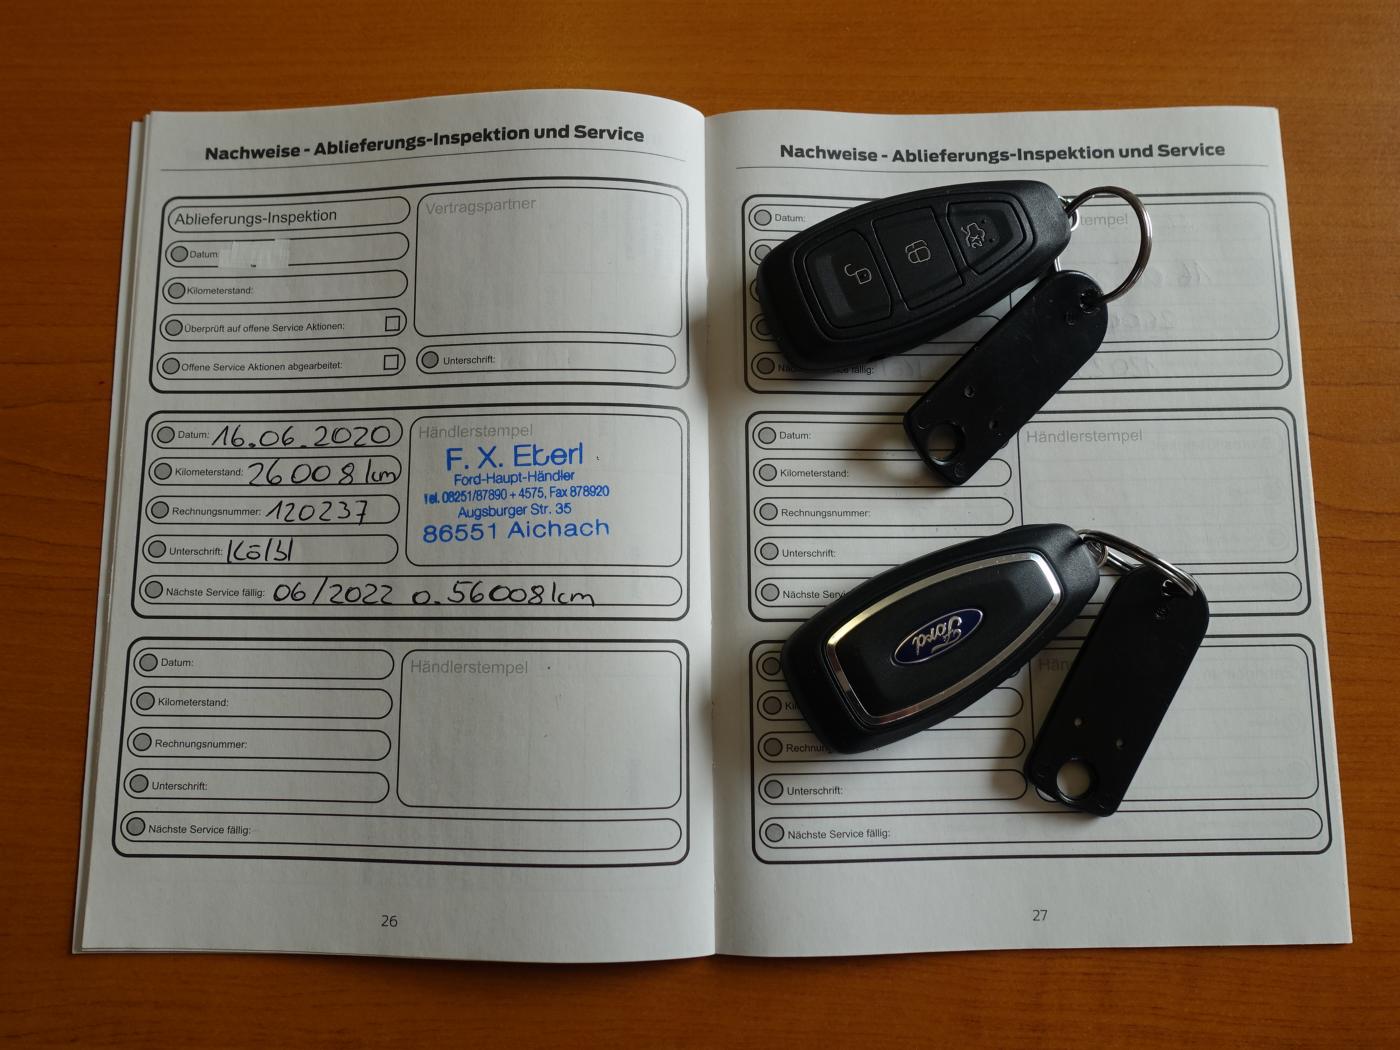 Nachweise - Ablieferungs-Inspektion und Service
Ablieferungs-Inspektion
Datum:
Kilometerstand:
Überprüft auf offene Service Aktionen:
Offene Service Aktionen abgearbeitet:
Vertragspartner
Unterschrift:
Datum: 16.06.2020
Kilometerstand: 26008 km
Rechnungsnummer: 120237
Unterschrift: Kölbl
Nächste Service fällig: 06/2022 o. 56008 km
Händlerstempel
F. X. Eberl
Ford-Haupt-Händler
Tel. 08251/87890 + 4575, Fax 878920
Augsburger Str. 35
86551 Aichach
Datum:
Kilometerstand:
Rechnungsnummer:
Unterschrift:
Nächste Service fällig:
Händlerstempel
26
Nachweise - Ablieferungs-Inspektion und Service
Datum:
stempel
fällig:
Datum:
Kilometerstand:
Rechnungsnummer:
Unterschrift:
Nächste Serv
Händlerstempel
Ford
Ki
Rechnun
Unterschrift:
Nächste Service fällig:
Hän
27